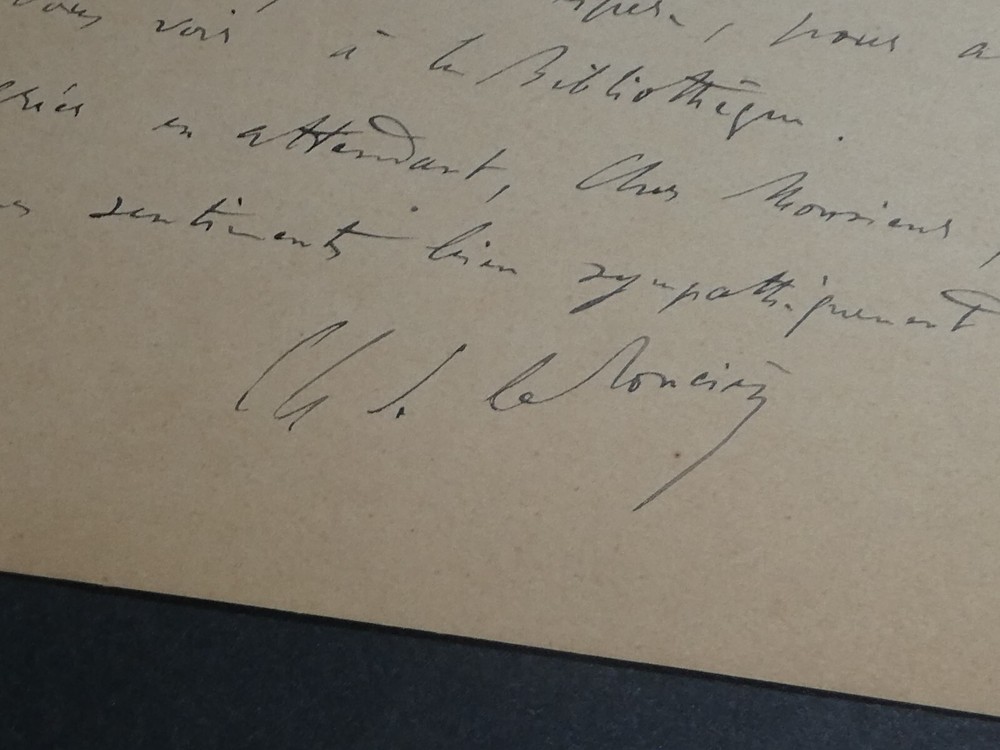 vous voir à la Bibliothèque.
en attendant, Cher Monsieur,
sentiments bien sympathiquement
Ch de la Roncière